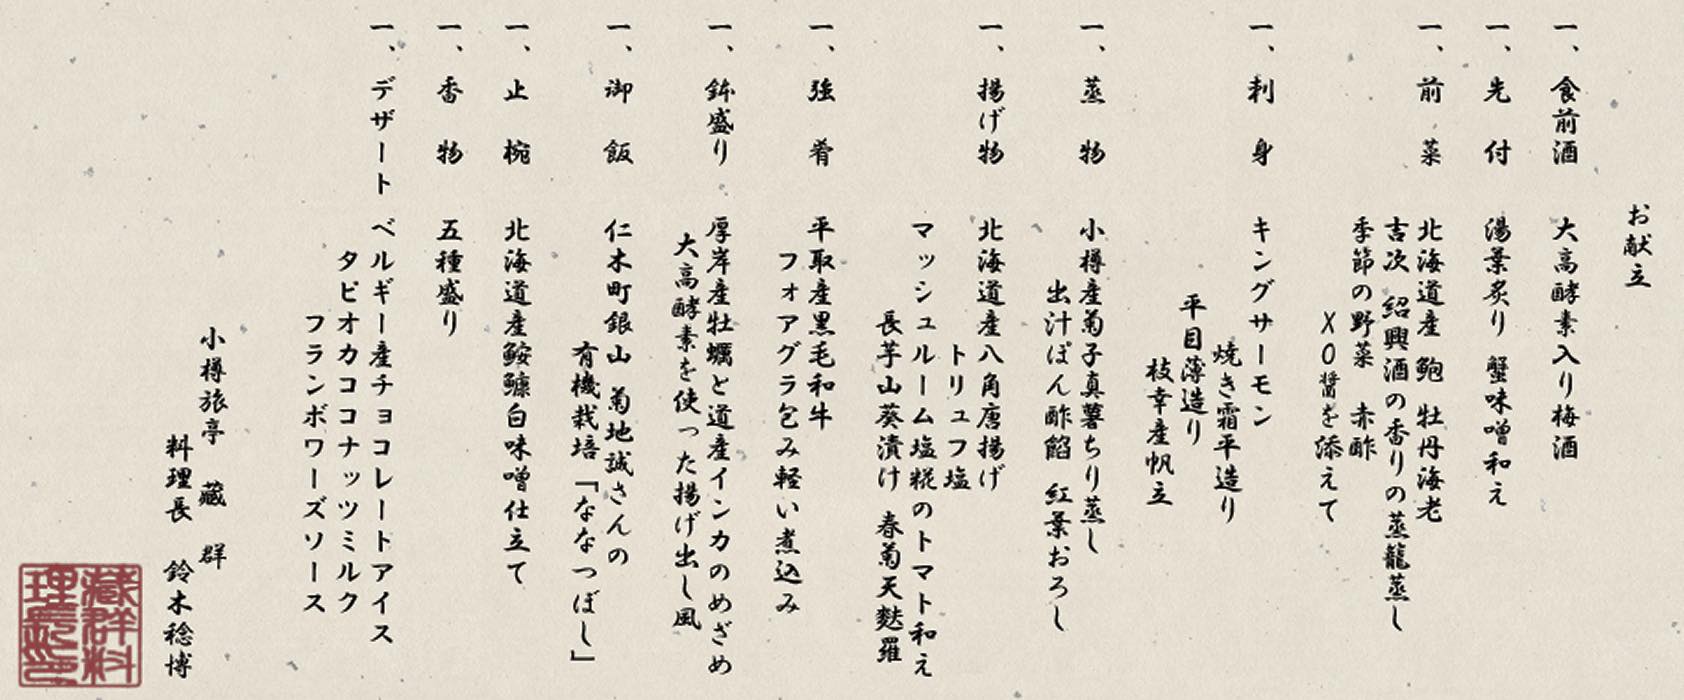 お献立
一、食前酒 大高酵素入り梅酒
一、先付 湯葉炙り 蟹味噌和え
一、前菜 北海道産 鮑 牡丹海老
吉次 紹興酒の香りの蒸籠蒸し
季節の野菜 赤酢
XO醤を添えて
一、刺身 キングサーモン
焼き霜平造り
平目薄造り
枝幸産帆立
一、蒸物 小樽産菊子真薯ちり蒸し
出汁ぽん酢餡 紅葉おろし
一、揚げ物 北海道産八角唐揚げ
トリュフ塩
マッシュルーム塩糀のトマト和え
長芋山葵漬け 春菊天麩羅
一、強肴 平取産黒毛和牛
フォアグラ包み軽い煮込み
一、鉢盛り 厚岸産牡蠣と道産インカのめざめ
大高酵素を使った揚げ出し風
一、御飯 仁木町銀山 菊地誠さんの
有機栽培「ななつぼし」
一、止椀 北海道産鮟鱇白味噌仕立て
一、香物 五種盛り
一、デザート ベルギー産チョコレートアイス
タピオカココナッツミルク
フランボワーズソース
小樽旅亭 藏群
料理長 鈴木稔博
藏群料
理長印